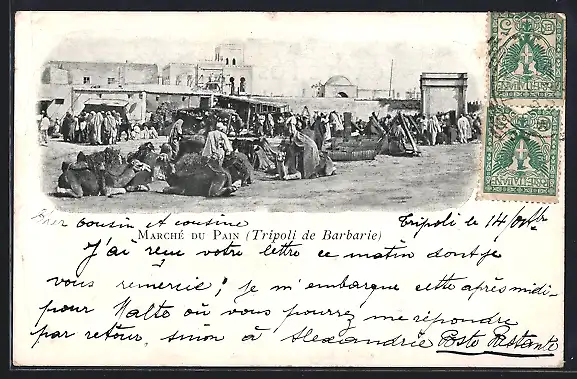 Cher cousin et cousine
Tripoli le 14
MARCHÉ DU PAIN (Tripoli de Barbarie)
J'ai reçu votre lettre ce matin dont je
vous remercie; Je m'embarque cette après midi
pour Malte où vous pourrez me répondre
par retour, sinon à Alexandrie Poste Restante